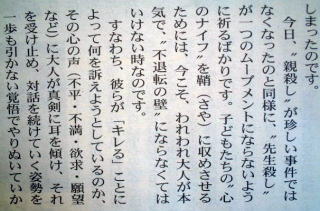 しまったのです。
今日、〝親殺し〟が珍しい事件では
なくなったのと同様に、〝先生殺し〟
が一つのムーブメントにならないよう
に祈るばかりです。子どもたちの〝心
のナイフ〟を鞘（さや）に収めさせる
ためには、今こそ、われわれ大人が本
気で、〝不退転の壁〟にならなくては
いけない時なのです。
すなわち、彼らが「キレる」ことに
よって何を訴えようとしているのか、
その心の声（不平・不満・欲求・願望
など）に大人が真剣に耳を傾け、それ
を受け止め、対話を続けていく姿勢を
一歩も引かない覚悟でやりぬいていか